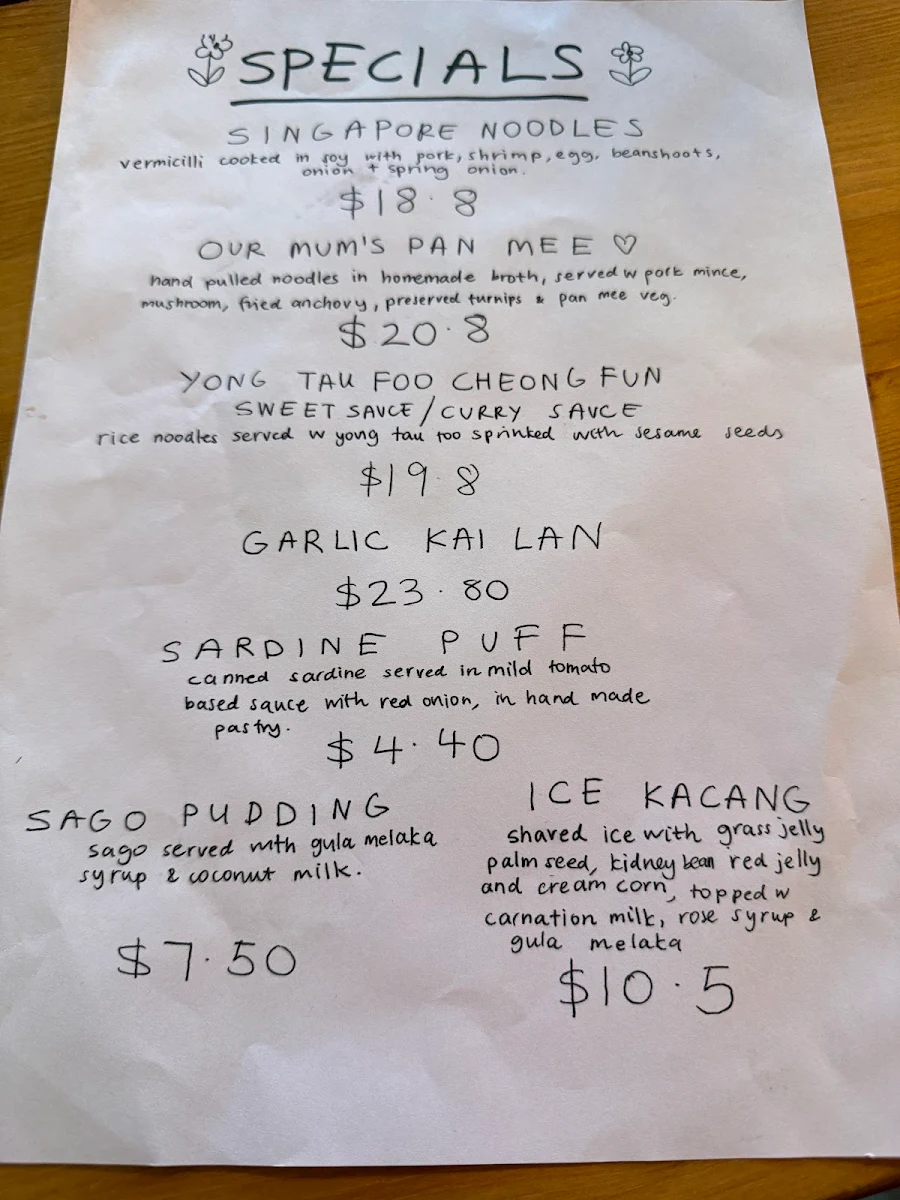 SPECIALS
SINGAPORE NOODLES
vermicilli cooked in soy with pork, shrimp, egg, beanshoots,
onion + spring onion.
$18.8
OUR MUM'S PAN MEE ♡
hand pulled noodles in homemade broth, served w pork mince,
mushroom, fried anchovy, preserved turnips & pan mee veg.
$20.8
YONG TAU FOO CHEONG FUN
SWEET SAUCE/CURRY SAUCE
rice noodles served w yong tau foo sprinked with sesame seeds
$19.8
GARLIC KAI LAN
$23.80
SARDINE PUFF
canned sardine served in mild tomato
based sauce with red onion, in hand made
pastry.
$4.40
SAGO PUDDING
sago served with gula melaka
syrup & coconut milk.
$7.50
ICE KACANG
shaved ice with grass jelly
palm seed, kidney bean red jelly
and cream corn, topped w
carnation milk, rose syrup &
gula melaka
$10.5